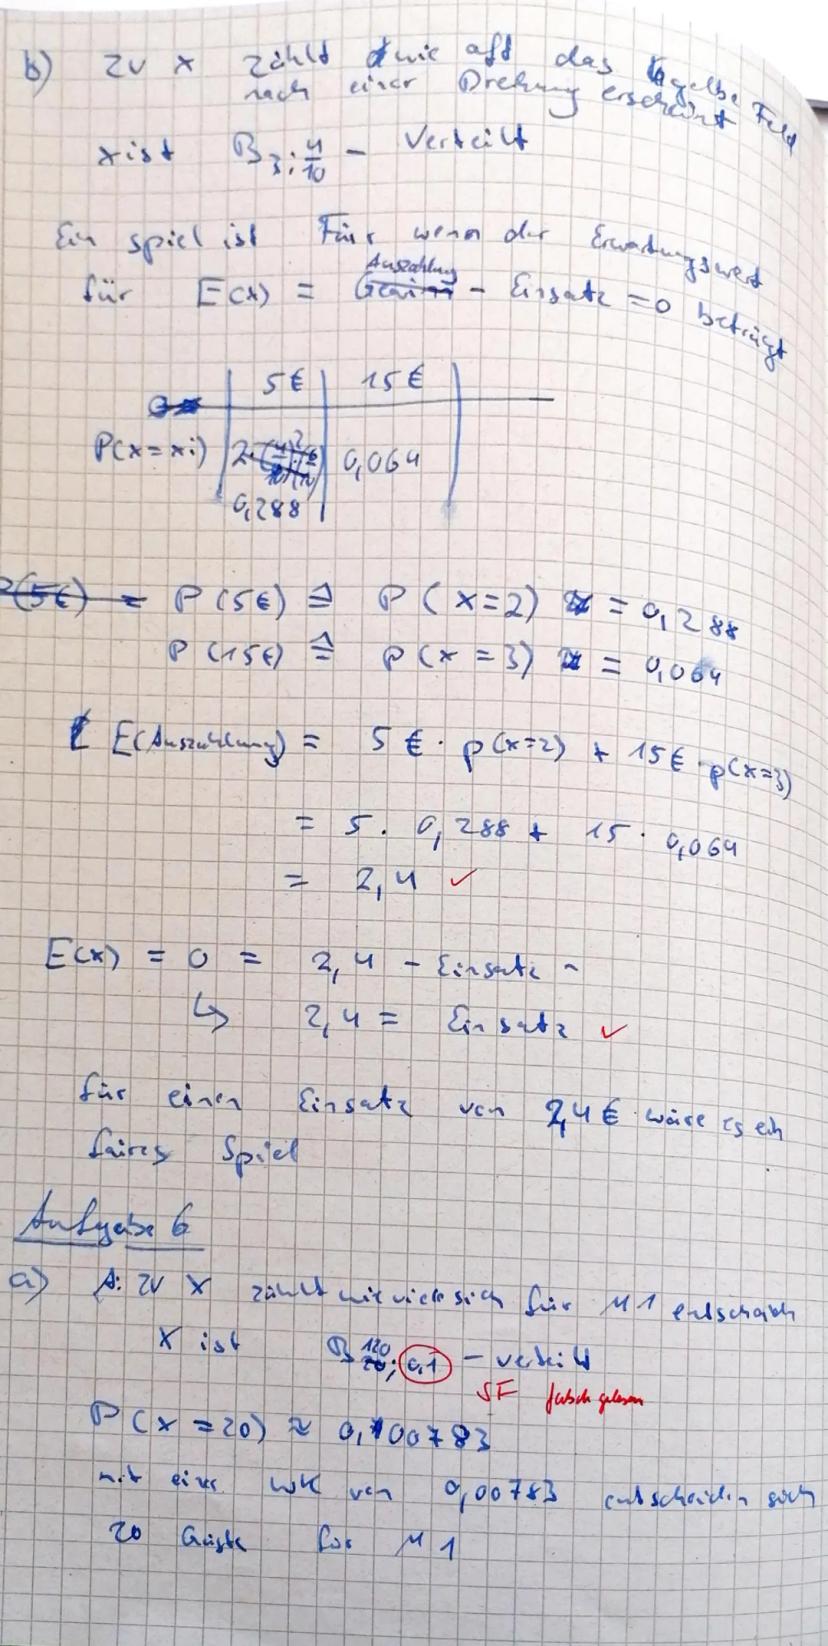 b) ZV X zählt wie oft das gelbe Feld
nach einer Drehung erscheint
X ist B3;4/10 - Verteilt
Ein spiel ist Fair wenn der Erwartungswert
für E(x) = Auszahlung - Einsatz = 0 beträgt
5€ 15€
P(x=xi) 0,064
0,288
P(5€) ≙ P(x=2) = 0,288
P(15€) ≙ P(x=3) = 0,064
E(Auszahlung) = 5€ · p(x=2) + 15€ · p(x=3)
= 5 · 0,288 + 15 · 0,064
= 2,4 ✓
E(x) = 0 = 2,4 - Einsatz
↳ 2,4 = Einsatz ✓
für einen Einsatz von 2,4€ wäre es ein
faires Spiel
Aufgabe 6
a) A: ZV X zählt wie viele sich für M1 entscheiden
X ist B120;0,1 - verteilt
SF falsch gelesen
P(X=20) ≈ 0,00783
mit einer WK von 0,00783 entscheiden sich
20 Gäste für M1